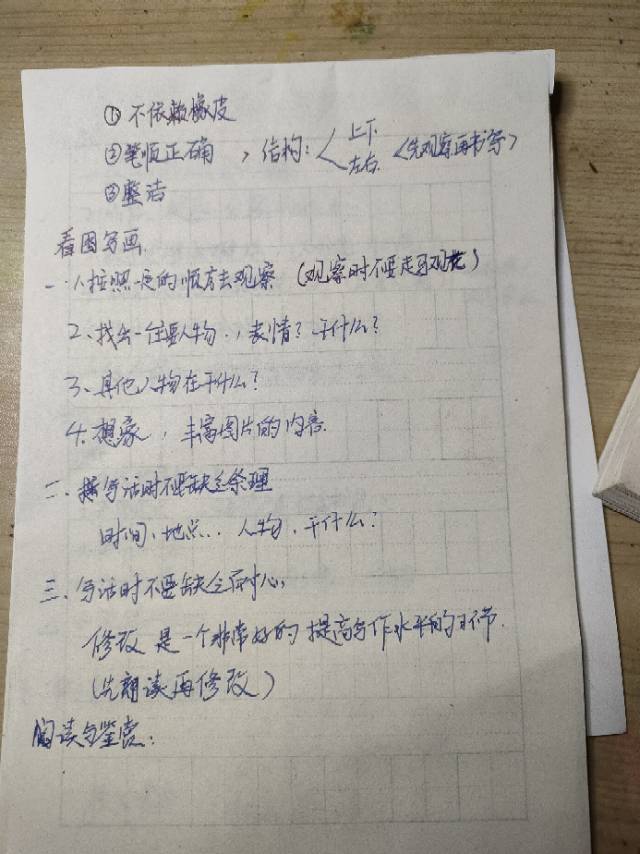 ①不依赖橡皮
②笔顺正确，结构：上下 左右（先观察再书写）
③整洁
看图写画
一、1、按照一定的顺序去观察（观察时不要走马观花）
2、找出一位主要人物，表情？干什么？
3、其他人物在干什么？
4、想象，丰富图片的内容
二、写话时不要缺乏条理
时间、地点、人物、干什么？
三、写话时不要缺乏耐心，
修改是一个非常好的提高写作水平的环节.
（先朗读再修改）
阅读与鉴赏：